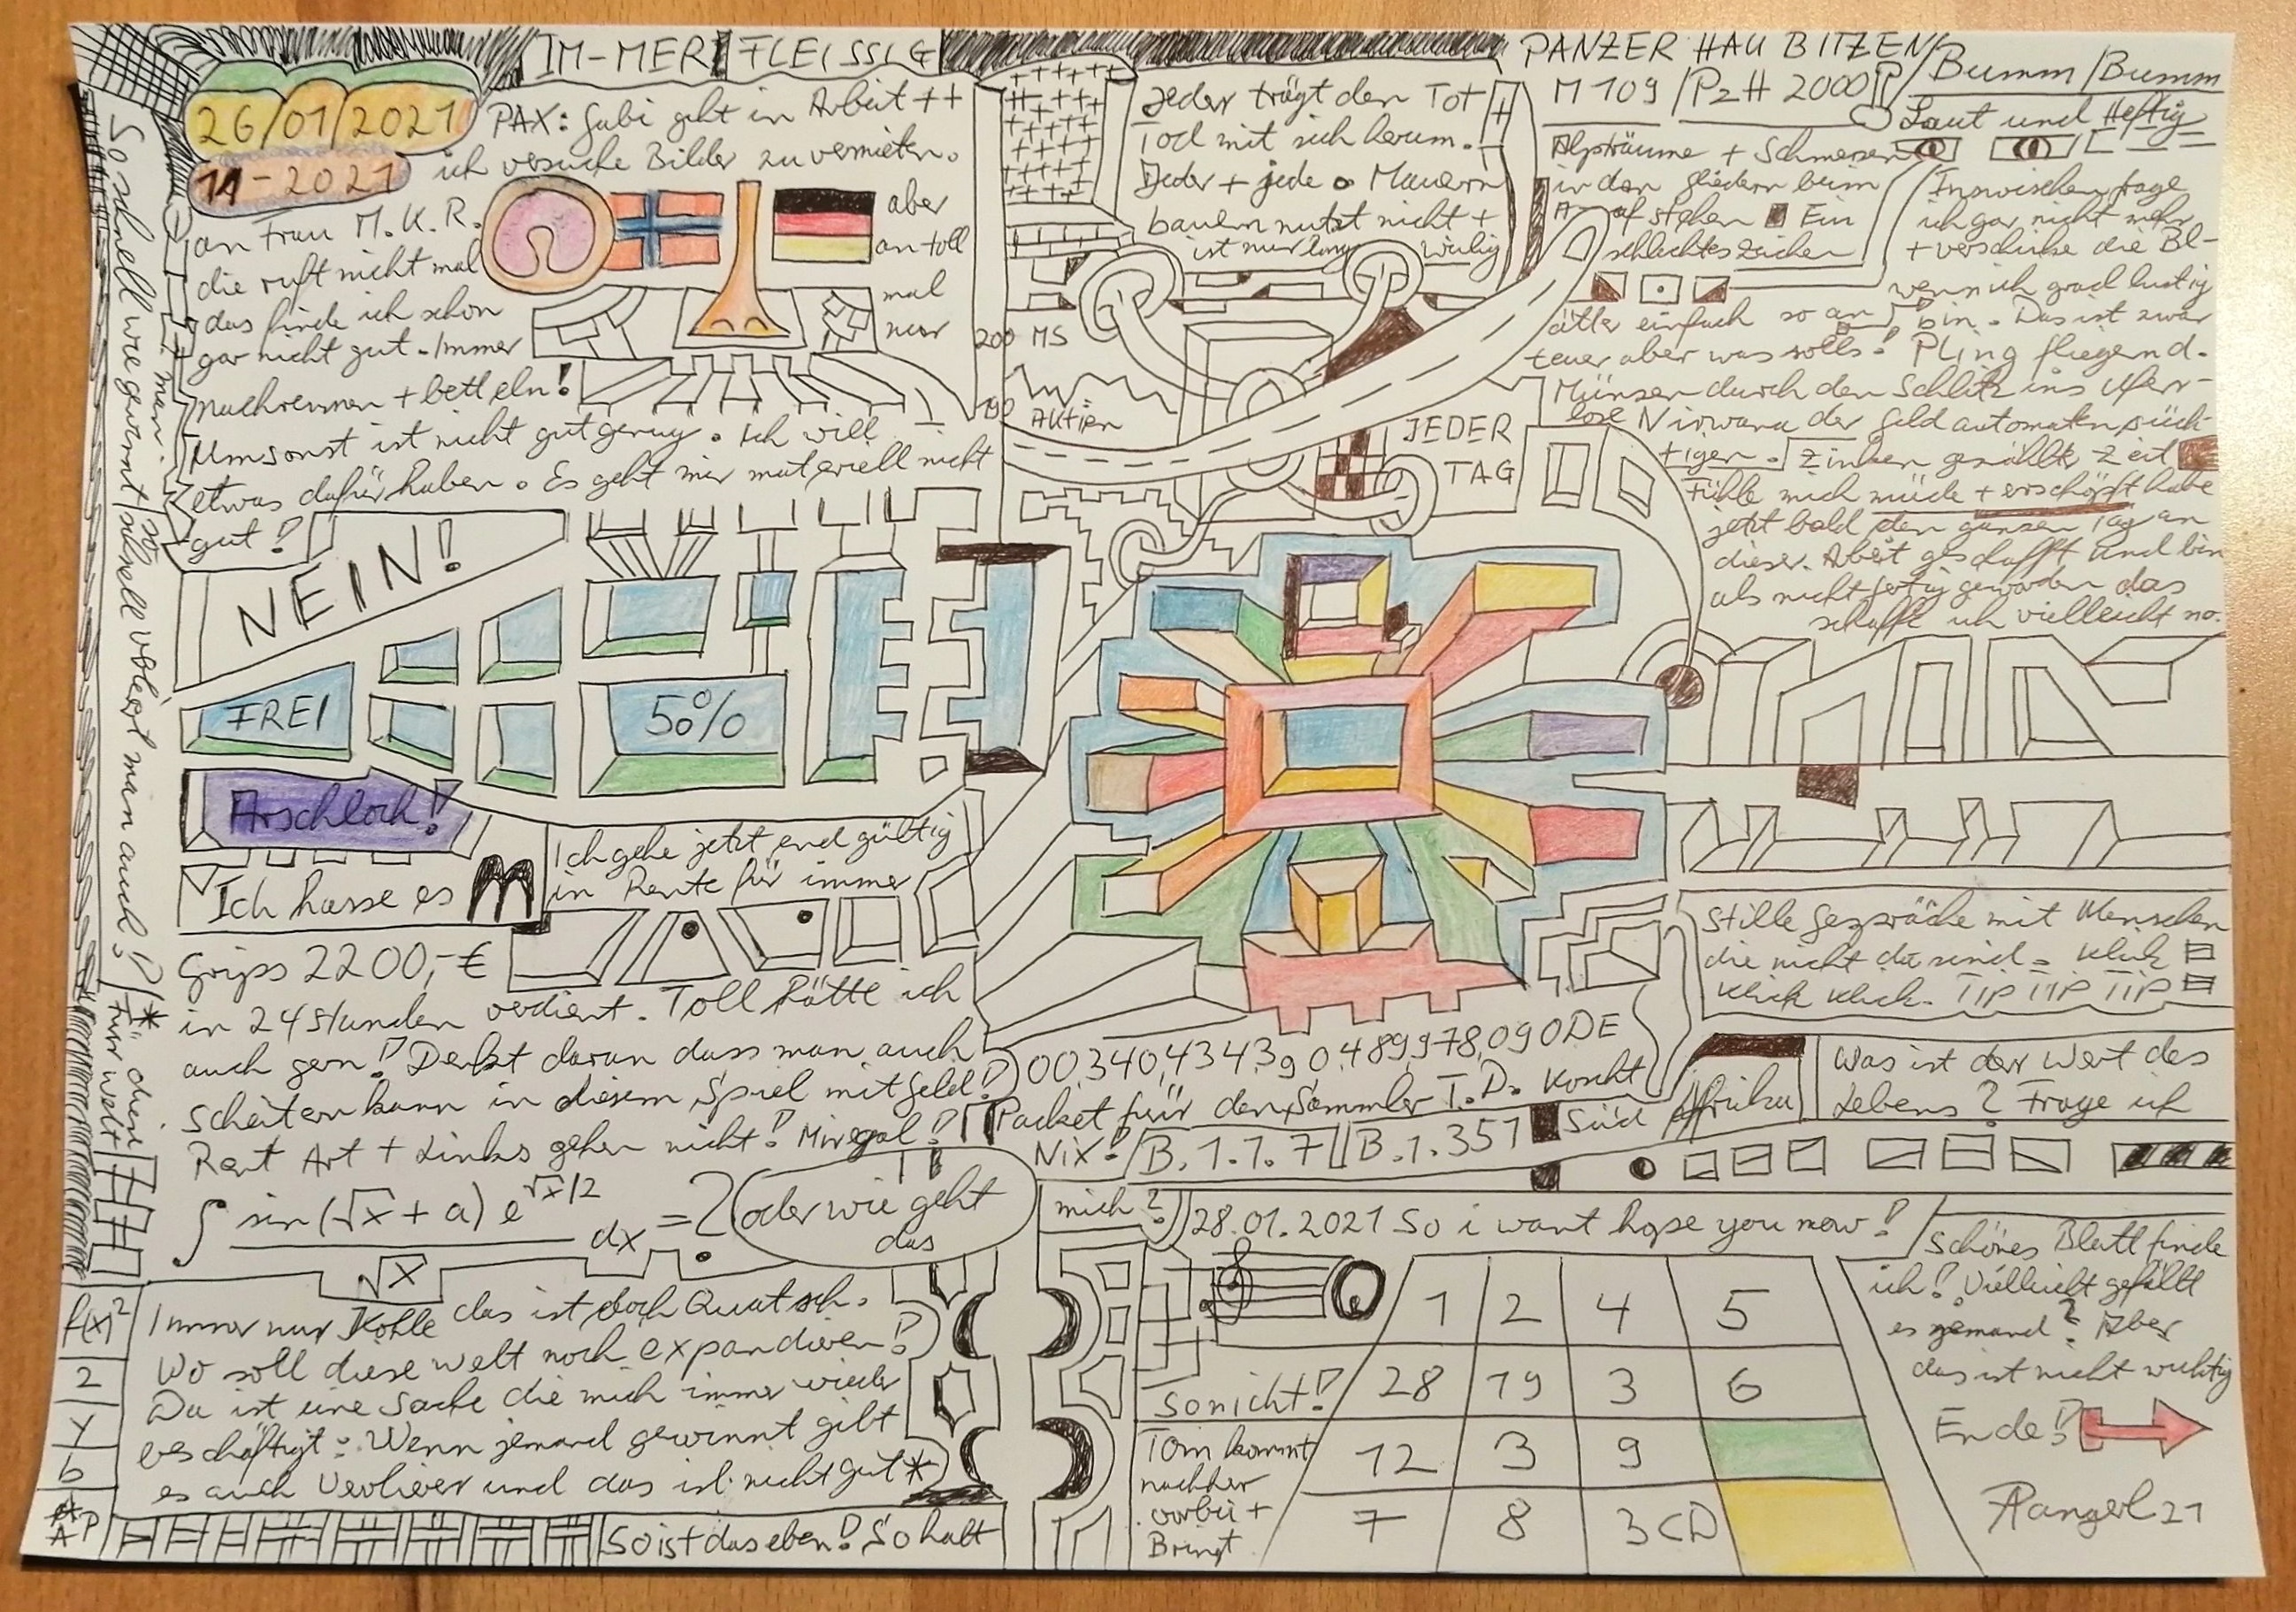 IM-MER FLEISSIG
26/01/2021
11-2021
PAX: Gabi geht in Arbeit ++
ich versuche Bilder zu vermieten.
an Frau M.K.R.
die ruft nicht mal
das finde ich schon
gar nicht gut. Immer
nachrennen + betteln!
aber
an toll
mal
nur
Umsonst ist nicht gut genug. Ich will
etwas dafür haben. Es geht mir materiell nicht
gut!
So schnell wie gewonnen
so schnell verliert man auch!
für diese Welt
NEIN!
FREI
50%
Arschloch!
Ich hasse es
Ich gehe jetzt endgültig
in Rente für immer
Grips 2200,-€
in 24 Stunden verdient. Toll hätte ich
auch gern! Denkt daran dass man auch
scheitern kann in diesem Spiel mit Geld!
Rent Art + Links gehen nicht! Mir egal!
∫ sin(√x + a) e^√x/2 / √x dx = ?
oder wie geht
das
f(x)²
2
y
b
A P
Immer nur Kohle das ist doch Quatsch.
Wo soll diese Welt noch expandieren!
Da ist eine Sache die mich immer wieder
beschäftigt: Wenn jemand gewinnt gibt
es auch Verlierer und das ist nicht gut*
So ist das eben! So halt
Jeder trägt den Tot
Tod mit sich herum.
Jeder + jede. Mauern
bauen nutzt nicht +
ist nur
200 MS
190
Aktien
JEDER
TAG
PANZER HAU BITZEN
M 109 / PzH 2000
Bumm / Bumm
Laut und Heftig
Alpträume + Schmerzen
in den Gliedern beim
A- ufstehen Ein
schlechtes Zeichen
Inzwischen frage
ich gar nicht mehr
+ verschicke die Bl-
wenn ich grad lustig
ätter einfach so an
bin. Das ist zwar
teuer aber was solls! Pling fliegend.
Münzen durch den Schlitz ins Ufer-
lose Nirwana der Geldautomaten süch-
tigen. Zinken gezählte Zeit
Fühle mich müde + erschöpft habe
jetzt bald den ganzen Tag an
dieser Arbeit geschafft und bin
als nicht fertig geworden das
schaffe ich vielleicht no.
Stille Gespräche mit Menschen
die nicht da sind. Klick
Klick Klick. TIP TIP TIP
00,340,4343,9 0,489,978,090DE
Packet für den Sammler T.D. kommt
Nix!
B.1.1.7
B.1.351
Süd Afrika
Was ist der Wert des
Lebens? Frage ich
mich?
28.01.2021 So i want hope you now!
1 2 4 5
28 19 3 6
12 3 9
7 8 3CD
So nicht!
Tom kommt
nachher
vorbei +
Bringt
Schönes Blatt finde
ich! Vielleicht gefällt
es jemand? Aber
das ist nicht wichtig
Ende!
Rangerl 21